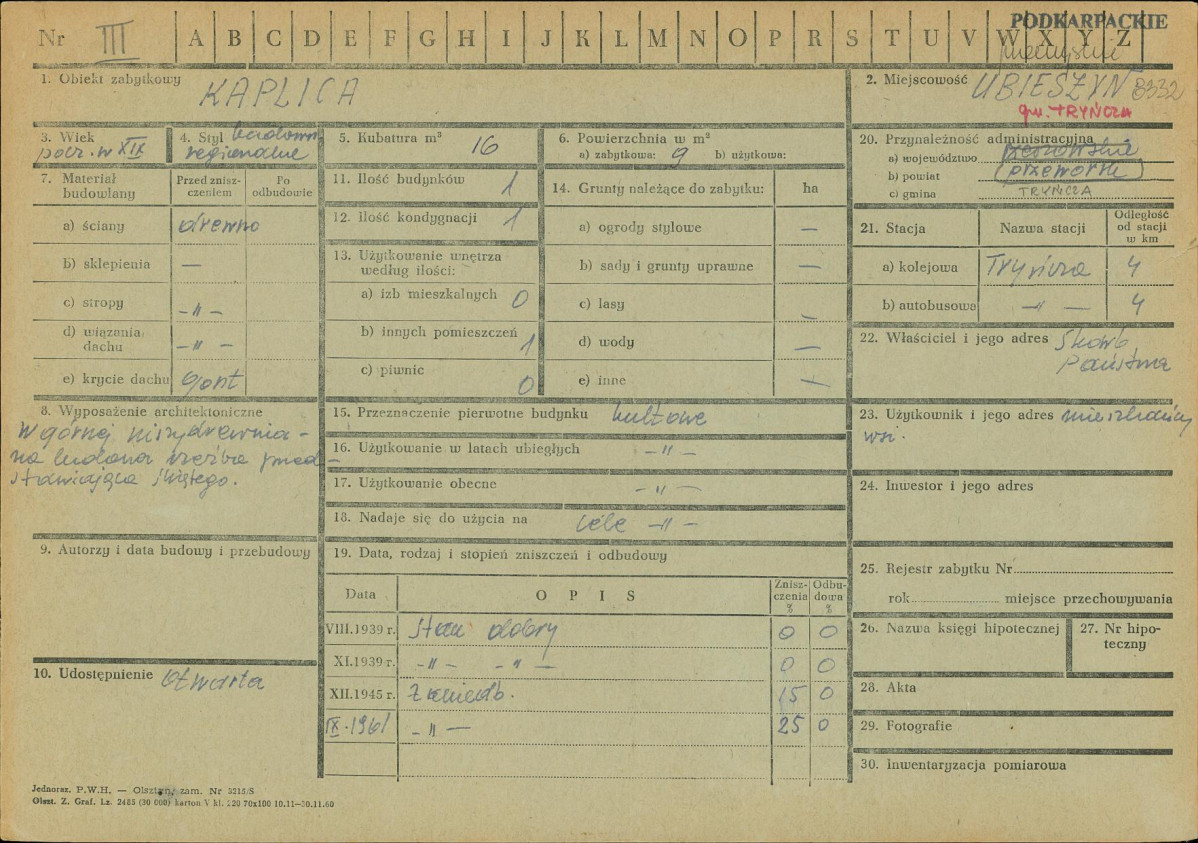 Nr III A B C D E F G H I J K L M N O P R S T U V W X Y Z
PODKARPACKIE
1. Obiekt zabytkowy KAPLICA
2. Miejscowość UBIESZYN 8332
gw. TRYŃCZA
3. Wiek
pocz. w XIX
4. Styl ludowo
regionalne
5. Kubatura m³ 16
6. Powierzchnia w m²
a) zabytkowa: 9 b) użytkowa:
7. Materiał
budowlany
Przed znisz-
czeniem
Po
odbudowie
a) ściany drewno
b) sklepienia —
c) stropy — " —
d) wiązania
dachu — " —
e) krycie dachu gont
8. Wyposażenie architektoniczne
W górnej niszy drewnia-
na ludowa rzeźba przed-
stawiająca świętego.
9. Autorzy i data budowy i przebudowy
10. Udostępnienie otwarta
11. Ilość budynków 1
12. Ilość kondygnacji 1
13. Użytkowanie wnętrza
według ilości:
a) izb mieszkalnych 0
b) innych pomieszczeń 1
c) piwnic 0
14. Grunty należące do zabytku: ha
a) ogrody stylowe —
b) sady i grunty uprawne —
c) lasy —
d) wody —
e) inne —
15. Przeznaczenie pierwotne budynku kultowe
16. Użytkowanie w latach ubiegłych — " —
17. Użytkowanie obecne — " —
18. Nadaje się do użycia na cele — " —
19. Data, rodzaj i stopień zniszczeń i odbudowy
Data
O P I S
Znisz-
czenia
%
Odbu-
dowa
%
VIII. 1939 r. stan dobry 0 0
XI. 1939 r. — " — — " — 0 0
XII. 1945 r. zaniedb. 15 0
IX. 1961 — " — 25 0
20. Przynależność administracyjna
a) województwo rzeszowskie
b) powiat przeworsk
c) gmina TRYŃCZA
21. Stacja
Nazwa stacji
Odległość
od stacji
w km
a) kolejowa Tryńcza 4
b) autobusowa — " — 4
22. Właściciel i jego adres Skarb
Państwa
23. Użytkownik i jego adres mieszkańcy
wsi.
24. Inwestor i jego adres
25. Rejestr zabytku Nr
rok miejsce przechowywania
26. Nazwa księgi hipotecznej
27. Nr hipo-
teczny
28. Akta
29. Fotografie
30. Inwentaryzacja pomiarowa
Jednoraz. P.W.H. — Olsztyn, zam. Nr 3218/S
Olszt. Z. Graf. Lz. 2485 (30 000) karton V kl. 220 70x100 10.11—30.11.60